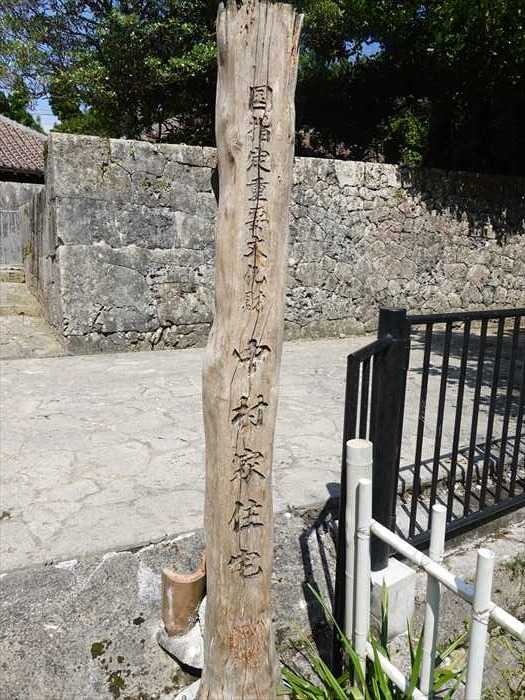 国指定重要文化財 中村家住宅